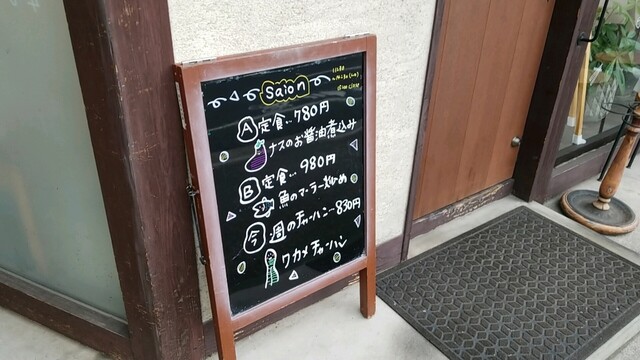 saion
Ⓐ定食‥780円
ナスのお醤油煮込み
Ⓑ定食‥980円
魚のマーラー炒め
今週のチャーハン‥830円
ワカメチャーハン